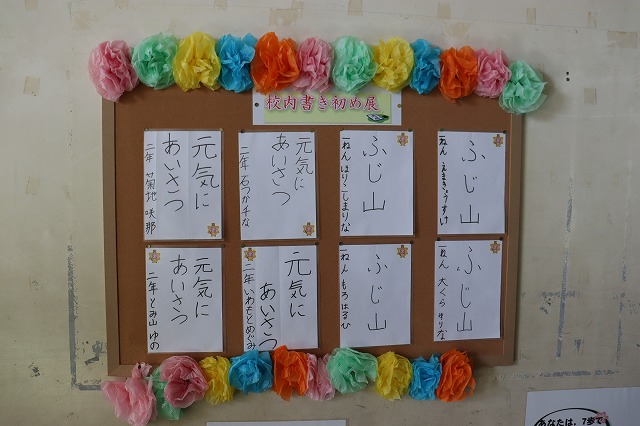 校内書き初め展
ふじ山
一ねん
ふじ山
一ねん ほりこしまりな
元気に
あいさつ
二年
元気に
あいさつ
二年 菊地 咲那
ふじ山
一ねん 大くら
ふじ山
一ねん もろはるひ
元気に
あいさつ
二年 いわもとめぐみ
元気に
あいさつ
二年 とみ山 ゆの
あなたは、7歩で